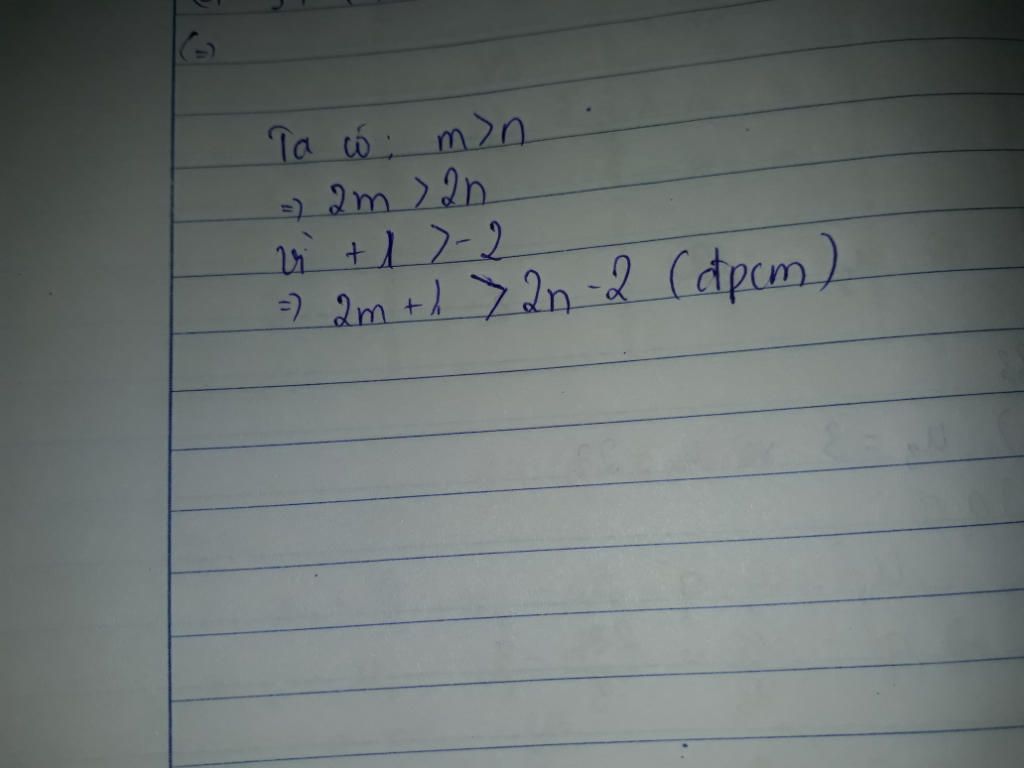 (=)
Ta có: m>n
=> 2m > 2n
vì +1 >-2
=> 2m +1 > 2n -2 (đpcm)